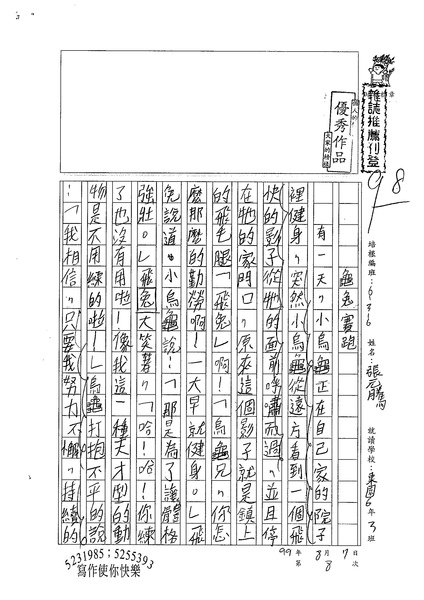 雜誌推薦刊登
個人的
優秀作品
大家的榜樣
98
培種編班：
姓名：
就讀學校：東園6年3班
99年8月7日
第8次
龜兔賽跑
有一天，小烏龜正在自己家的院子
裡健身，突然小烏龜從遠方看到一個飛
快的影子從牠的面前呼嘯而過，並且停
在牠的家門口，原來這個影子就是鎮上
的飛毛腿「飛兔」啊！「烏龜兄，你怎
麼那麼的勤勞啊！一大早就健身。」飛
兔說道。小烏龜說：「那是為了讓體格
強壯。」飛兔大笑著，「哈！哈！你練
了也沒有用啦！像我這一種天才型的動
物是不用練的啦！」烏龜打抱不平的說
：「我相信，只要我努力不懈，持續的
5231985；5255393
寫作使你快樂